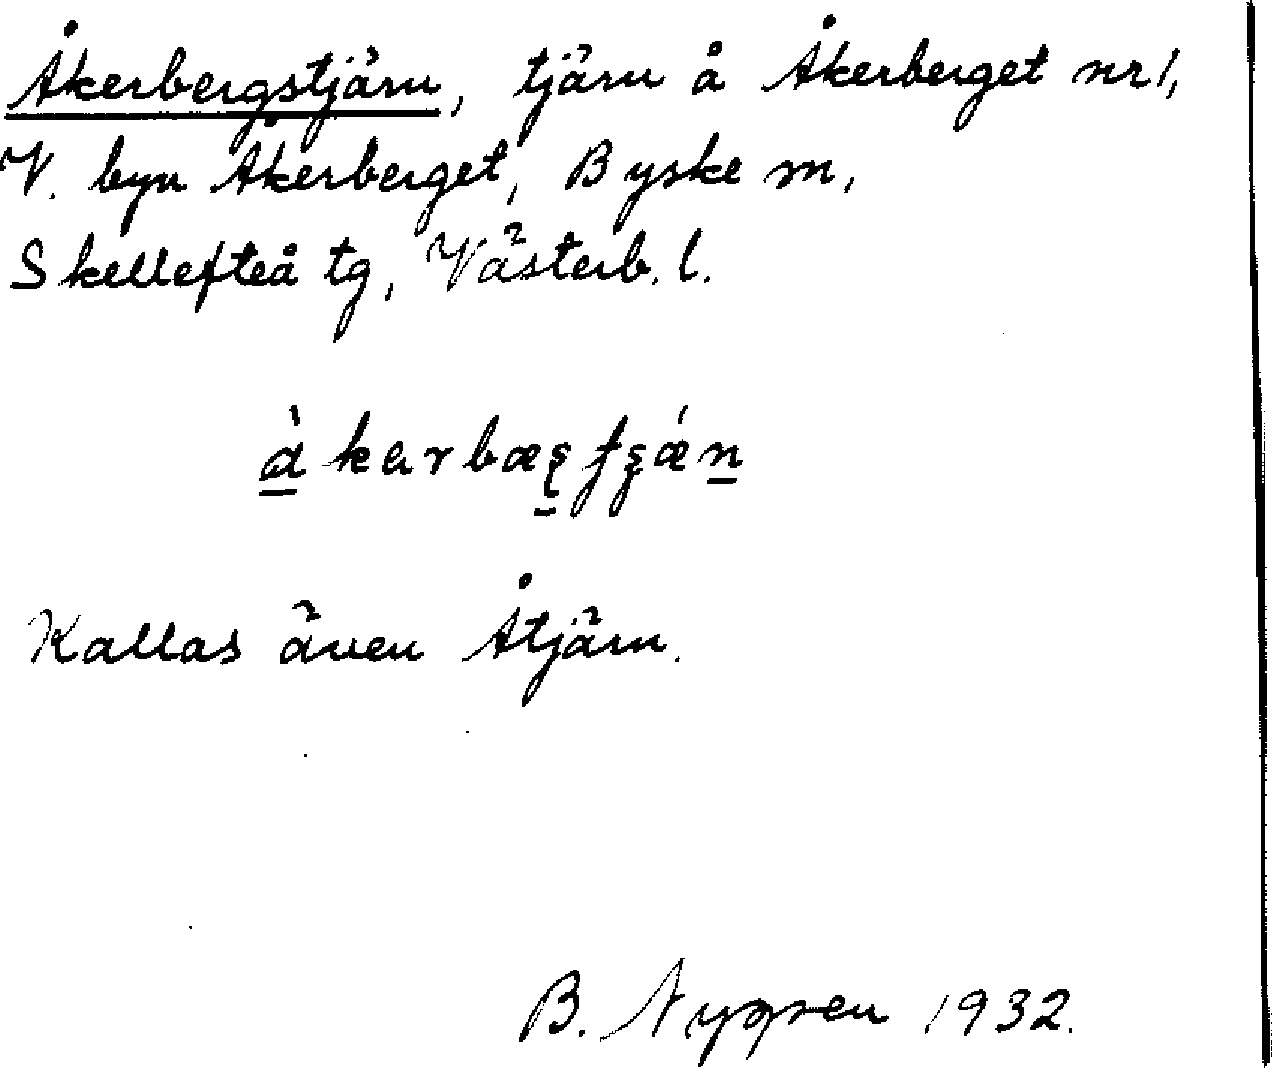 Åkerbergstjärn, tjärn å Åkerberget nr 1,
V. byn Åkerberget, Byske sn,
Skellefteå tg, Västerb. l.
Kallas även Åtjärn.
B. Nygren 1932.